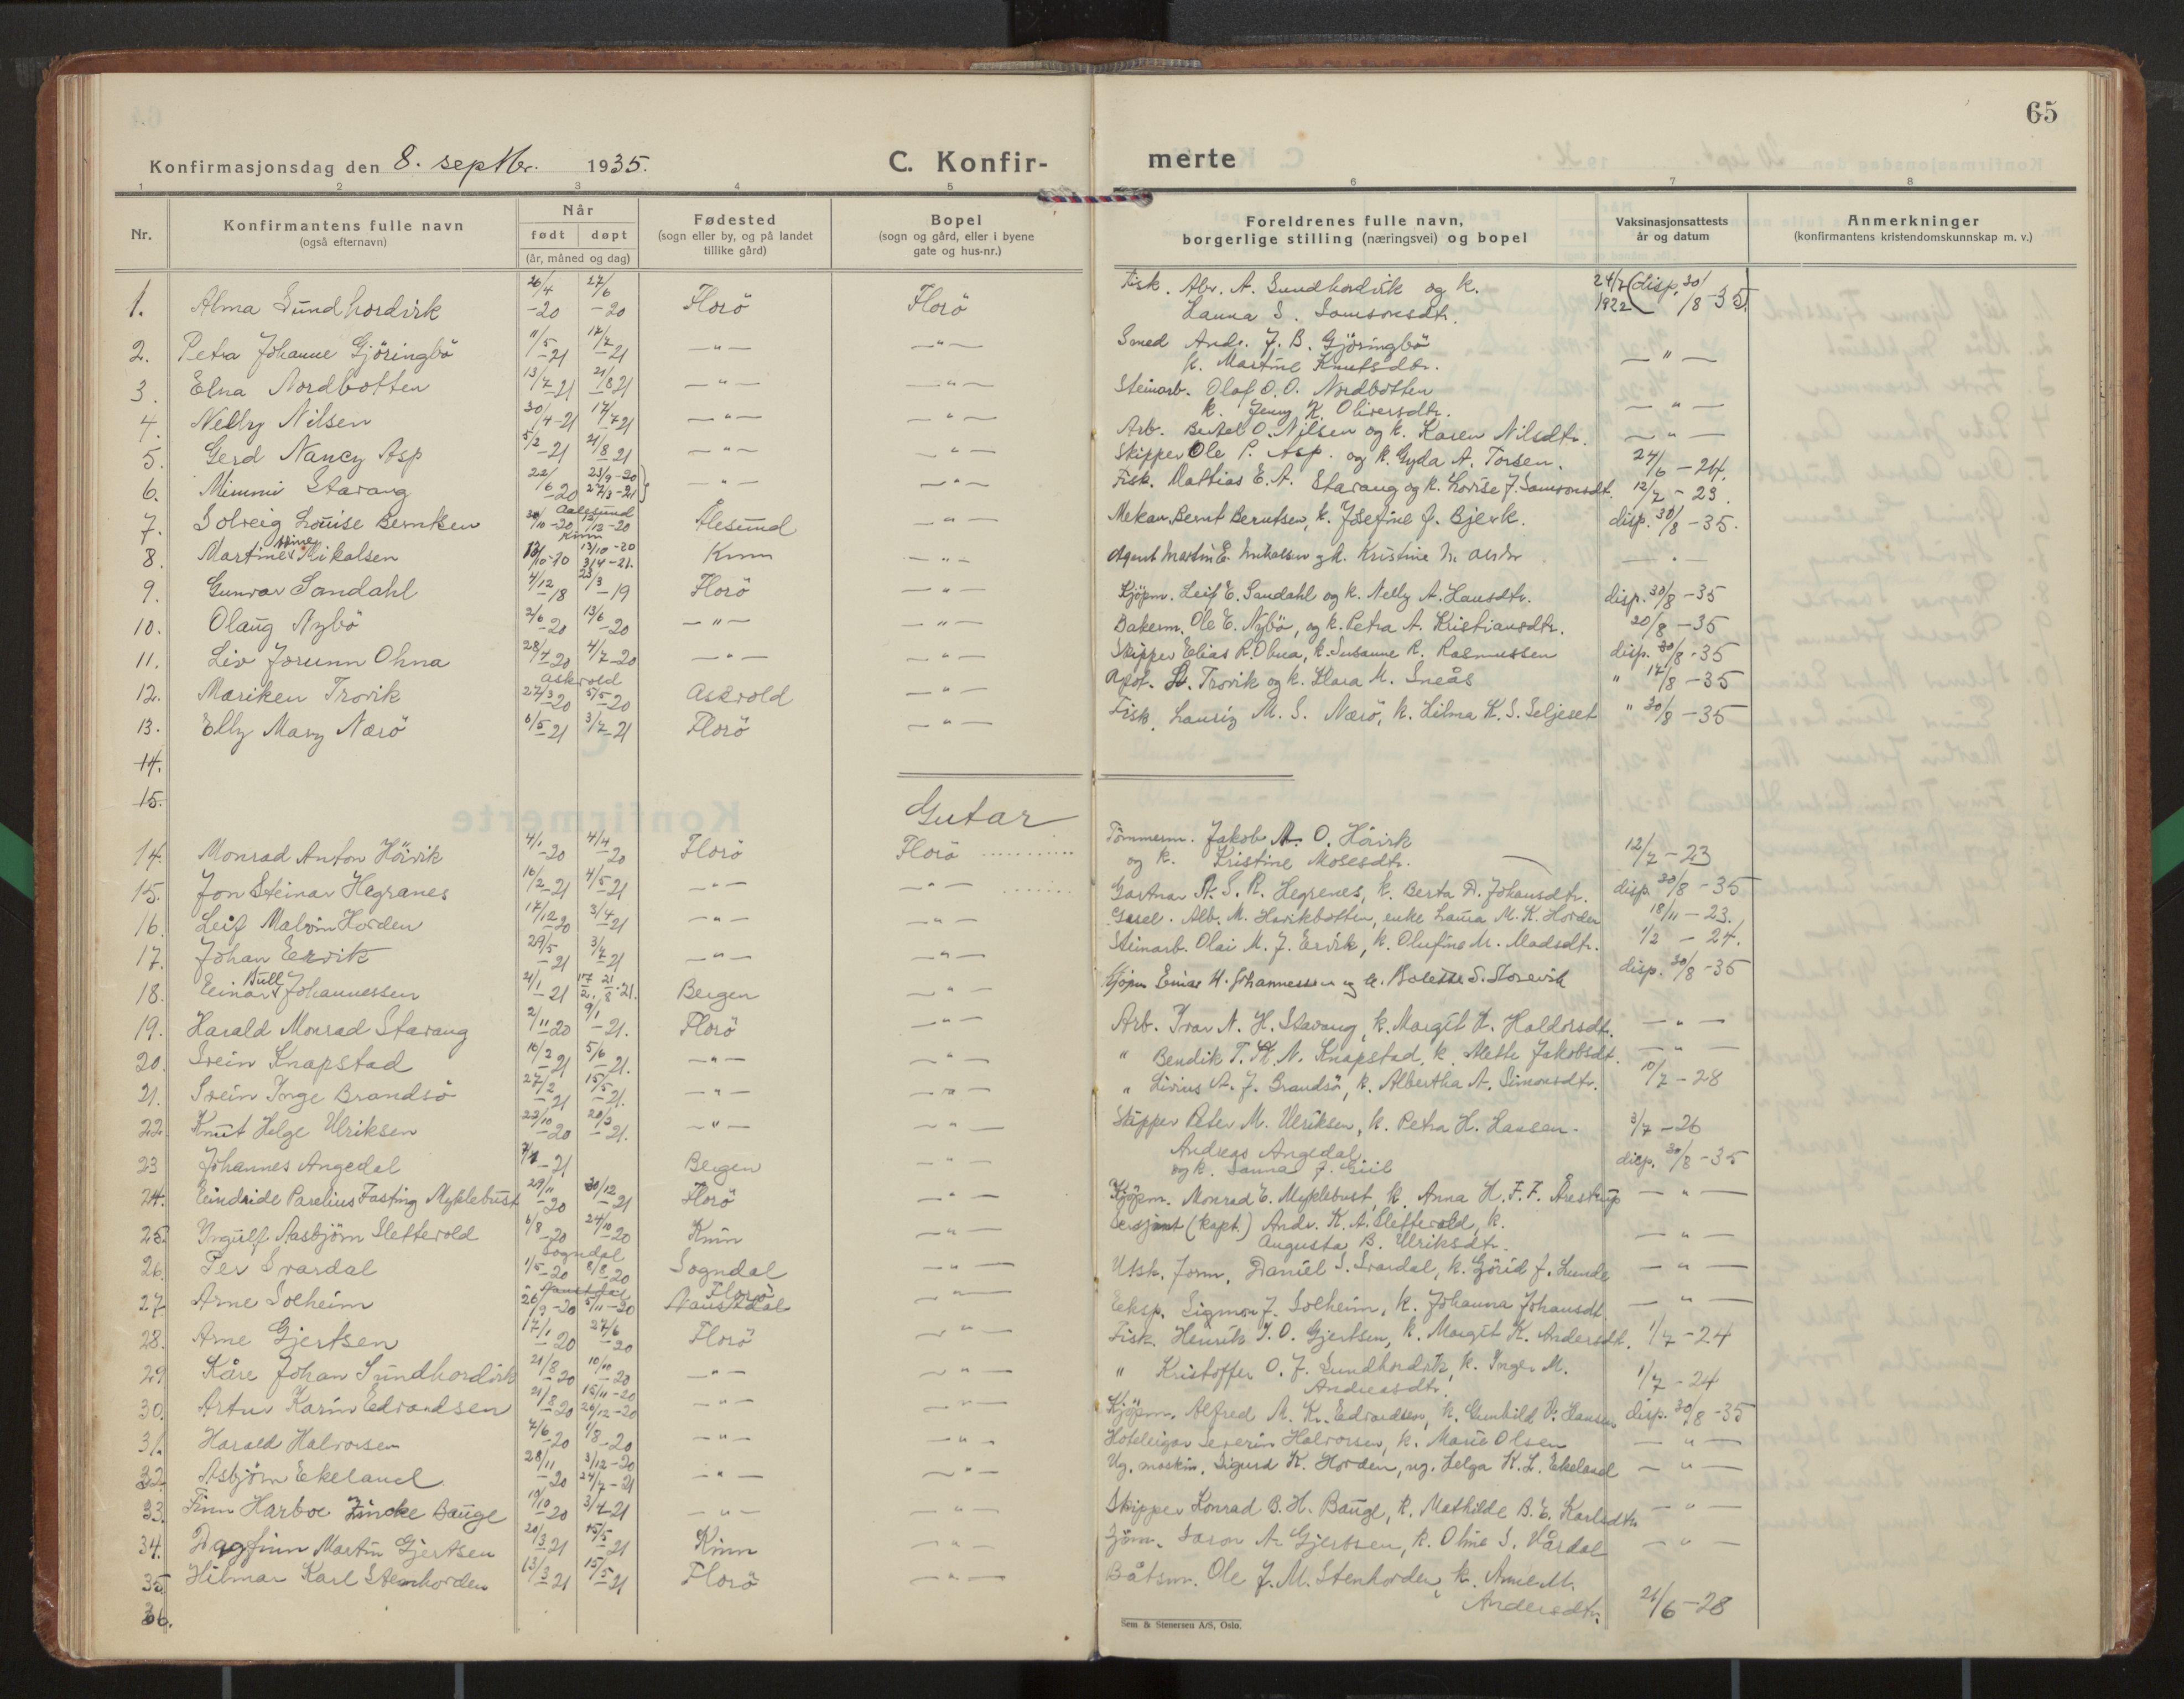 65
Konfirmasjonsdag den 8. septbr. 1935.
C. Konfir-
merte
1 2 3 4 5 6 7 8
Nr.
Konfirmantens fulle navn
(også efternavn)
Når
født døpt
(år, måned og dag)
Fødested
(sogn eller by, og på landet
tillike gård)
Bopel
(sogn og gård, eller i byene
gate og hus-nr.)
Foreldrenes fulle navn,
borgerlige stilling (næringsvei) og bopel
Vaksinasjonsattests
år og datum
Anmerkninger
(konfirmantens kristendomskunnskap m. v.)
1. Alma Sundhordvik 26/4 -20 27/6 -20 Florö Florö Fisk. Alv. A. Sundhordvik og k. Hanna S. Samsonsdtr. 24/7 1922 (disp. 30/8-35.
2. Petra Johanne Gjöringbö 11/5 -21 17/7 -21 —"— —"— Smed Andr. J. B. Gjöringbö k. Martine Knutsdtr. —"—
3. Elna Nordbotten 13/7-21 21/8 21 —"— —"— Steinarb. Olaf O. O. Nordbotten k. Jenny K. Oliversdtr. —"—
4. Nelly Nilsen 30/4-21 17/7 21 —"— —"— Arb. Bertel O. Nilsen og k. Karen Nilsdtr. —"—
5. Gerd Nancy Asp 5/2 -21 21/8 21 —"— —"— Skipper Ole P. Asp. og k. Gyda A. Torsen. 24/6 -24.
6. Mimmi Stavang 22/6 -20 23/9-20 27/3-21 —"— —"— Fisk. Mathias E. A. Stavang og k. Lovise J. Samsonsdt. 12/7 -23.
7. Solveig Louise Berntsen 30/10-20 Aalesund 12/12-20 Ålesund —"— Mekan. Bernt Berntsen, k. Josefine J. Bjerk. disp. 30/8-35.
8. Martine Mikalsen Kinn 13/10-20 3/4-21. Kinn —"— Agent Martin E. Mikalsen og k. Kristine —"—
9. Gunvor Sandahl 4/12 -18 23/3 -19 Florö —"— Kjöpm. Leif E. Sandahl og k. Nelly A. Hansdtr. disp. 30/8-35
10. Olaug Nybö 2/6 -20 13/6 -20 —"— —"— Bakerm. Ole E. Nybö, og k. Petra A. Kristiansdtr. 20/8-35
11. Liv Jorunn Ohna 28/4-20 4/7-20 —"— —"— Skipper Elias R. Ohna, k. Susanne R. Rasmussen disp. 30/8-35
12. Mariken Trovik 27/3-20 Askvold 5/5-20 Askvold —"— Apot. L. Trovik og k. Klara M. Sneås " 17/8-35
13. Elly Mary Nærö 6/5-21 3/7-21 Florö —"— Fisk. Lauriz M. S. Nærö, k. Hilma K. S. Seljeset " 30/8-35
14.
15.
Gutar
14. Monrad Anton Hövik 4/1 -20 4/4 -20 Florö Florö Tömmerm. Jakob A. O. Hövik og k. Kristine Mosesdtr. 12/7-23
15. Jon Steinar Hegranes 16/2-21 4/5-21 —"— —"— Gartnar A. S. R. Hegrenes, k. Berta D. Johansdtr. disp. 30/8-35
16. Leif Malvin Horden 17/12 20 3/4 -21 —"— —"— Alb. M. Havikbotten, enke Laura M. K. Horden 18/11-23.
17. Johan Ervik 29/5 -21 3/7 21 —"— —"— Steinarb. Olai M. J. Ervik, k. Olufine M. Madsdtr. 1/2 -24.
18. Einar Bull Johannessen 21/1 -21 21/8-21. Bergen —"— Kjöpm Einar H. Johannessen og k. Bolette S. Storevik disp. 30/8-35
19. Harald Monrad Stavang 2/11-20 9/1 -21. Florö —"— Arb. Ivar N. H. Stavang, k. Margit K. Haldorsdt. —"—
20. Svein Knapstad 16/2 21 5/6 -21. —"— —"— " Bendik T. K. N. Knapstad, k. Mette Jakobsdt. —"—
21. Svein Inge Brandsö 27/2 -21 15/5 -21. —"— —"— " Livius A. J. Brandsö, k. Albertha A. Simonsdtr. 10/7-28
22. Knut Helge Ulriksen 23/10 -20 20/3 -21. —"— —"— Skipper Peter M. Ulriksen, k. Petra H. Hansen. 3/7-26
23 Johannes Angedal -21 Bergen —"— Andreas Angedal og k. Sanna J. Giil disp. 30/8-35
24. Eindride Parelius Fasting Myklebust 29/11 -20 30/12 -21 Florö —"— Kjöpm. Monrad E. Myklebust, k. Anna H. F. F. Årestrup —"—
25. Yngulf Aasbjörn Sletterold 6/8 -20 24/10 -20 Kinn —"— Sersjant (kapt.) Andr. K. A. Sletterold, k. Augusta B. Ulriksdtr. —"—
26. Per Svardal 1/5-20 Sogndal 8/8-20 Sogndal —"— Utsk. form. Daniel S. Svardal, k. Görid J. Lunde —"—
27. Arne Solheim 26/9-20 Naustdal 5/11-20 Florö Naustdal —"— Eksp. Sigmon J. Solheim, k. Johanna Johansdt. —"—
28. Arne Gjertsen 17/1 20 27/6 -20 Florö —"— Fisk. Henrik J. O. Gjertsen, k. Margit K. Andersdt. 1/7-24
29 Kåre Johan Sundhordvik 21/8 20 10/10 -20 —"— —"— " Kristoffer O. J. Sundhordvik, k. Inge M. Andreasdtr. 1/7-24
30. Artur Karin Edvardsen 21/8 20 15/11-20 26/12-20 —"— —"— Kjöpm. Alfred M. K. Edvardsen, k. Gunhild V. Hansen disp. 30/8-35
31. Harald Halvorsen 7/6-20 1/8-20 —"— —"— Hoteleigar Severin Halvorsen, k. Marie Olsen —"—
32. Asbjörn Ekeland 28/11 -20 3/12-20 24/7-21 —"— —"— Ug. maskin. Sigurd K. Horden, ug. Helga K. L. Ekeland —"—
33. Finn Harboe Zincke Bauge 19/10 -20 3/4-21 —"— —"— Skipper Konrad B. H. Bauge, k. Mathilde B. E. Karlsdtr. —"—
34. Dagfinn Martin Gjertsen 20/3 21 15/5 21 Kinn —"— Saron A. Gjertsen, k. Oline S. Vårdal —"—
35 Hilmar Karl Stenhorden 13/3 21 15/5 21 Florö —"— Båtsm. Ole J. M. Stenhorden, k. Anne M. Andersdtr. 21/6-28
36.
Sem & Stenersen A/S, Oslo.